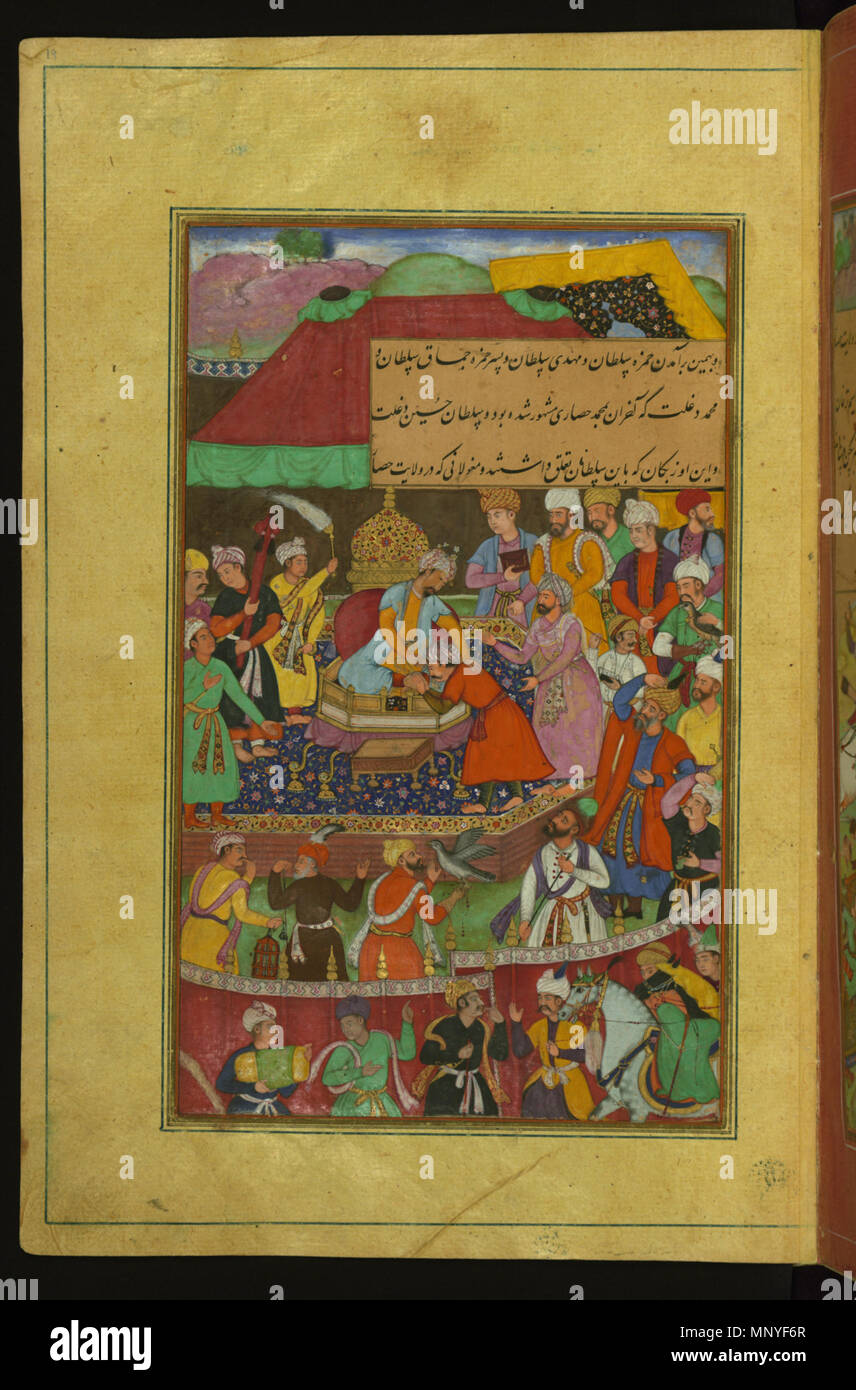 19
و بهمین برآمدن حمزه سلطان و مهدی سلطان و پسر حمزه جماق سلطان و
محمد دغلت که آخران بمحمد حصاری مشهور شده بود و سلطان حسین دغلت
و این اوزبکان که باین سلطانان تعلق داشتند و مغولانی که در ولایت حصا
alamy
Image ID: MNYF6R
www.alamy.com